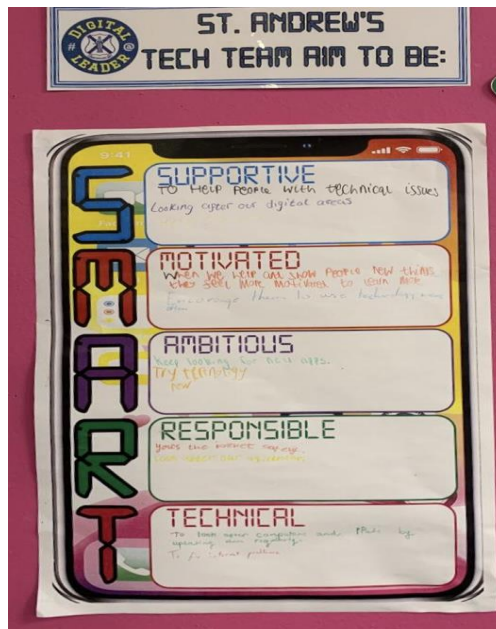 DIGITAL
LEADER
#
@
ST. ANDREW'S
TECH TEAM AIM TO BE:
9:41
SMART
SUPPORTIVE
TO HELP People with technical issues
Looking after our digital areas
MOTIVATED
When we help and show People new things
they feel more motivated to learn more
Encourage them to use technology more
often
AMBITIOUS
Keep looking for new apps.
Try technology
new
RESPONSIBLE
the internet safely.
Look after our
TECHNICAL
To look after computers and iPads by
updating them regularly.
To fix